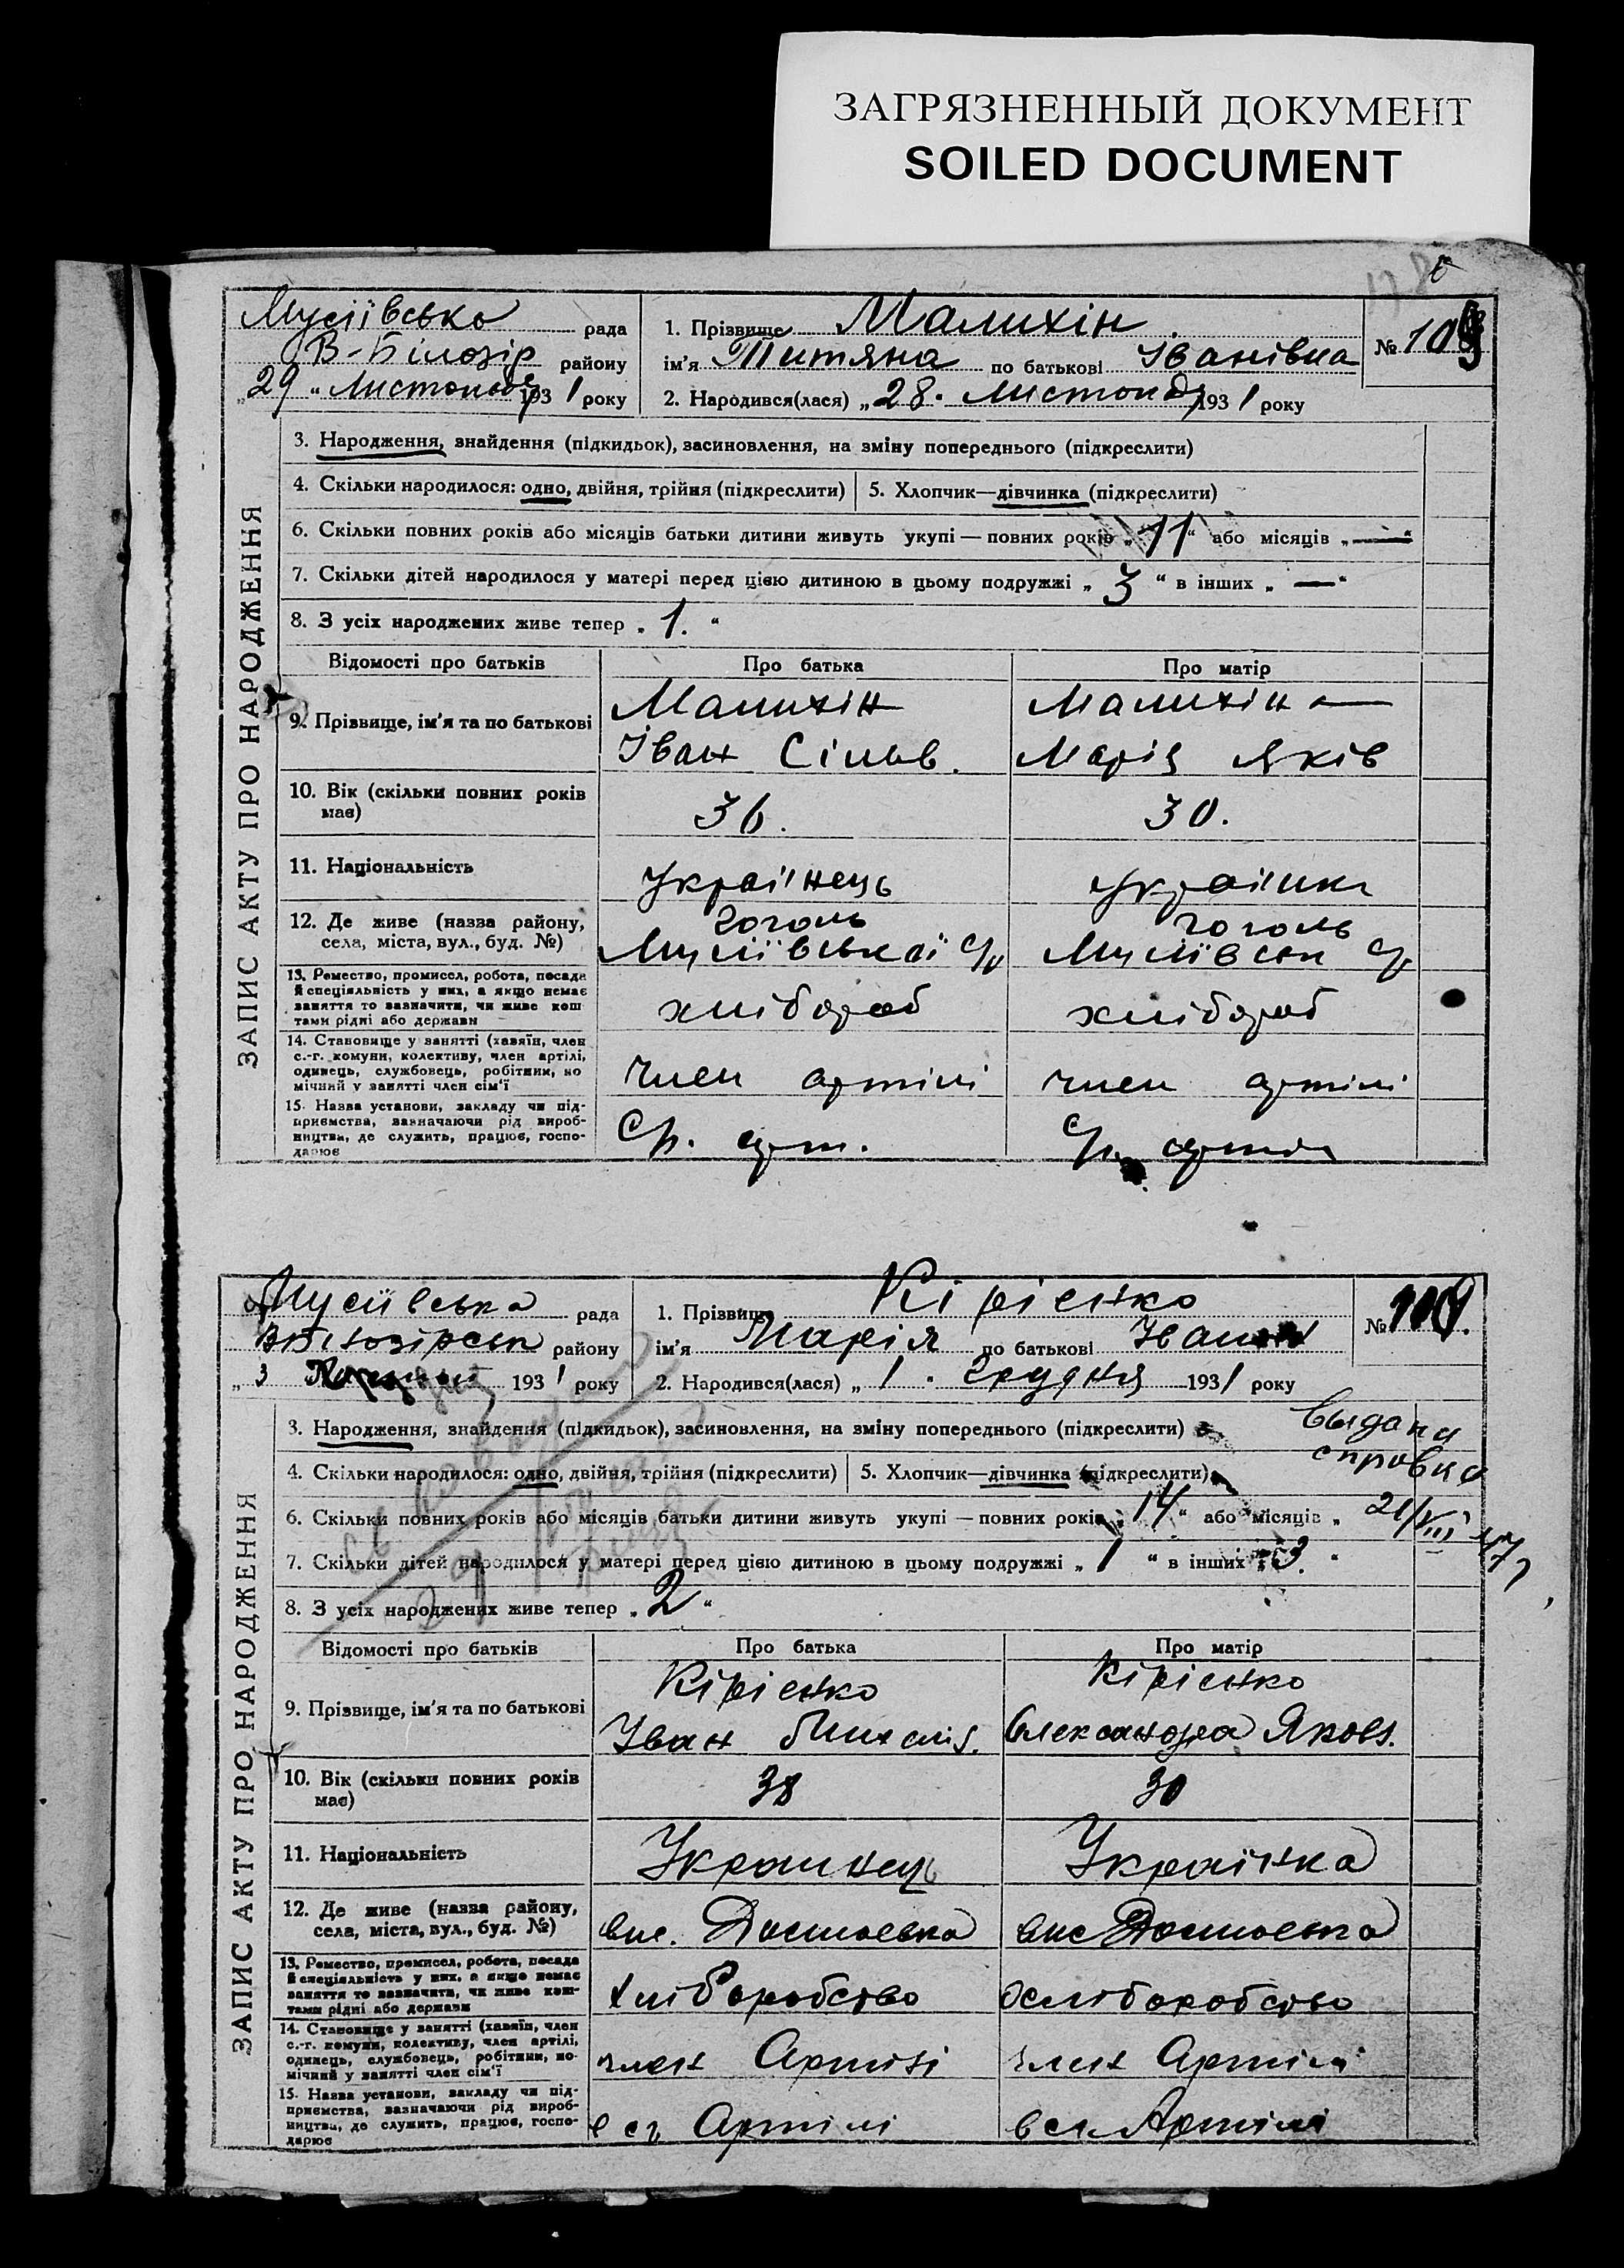 ЗАГРЯЗНЕННЫЙ ДОКУМЕНТ
SOILED DOCUMENT
Мусіївсько рада
В-Білозір району
„29“ Листопад 1931 року
1. Прізвище Малихін
ім'я Титяна по батькові Іванівна
2. Народився(лася) „28. листопад 1931 року
№ 108
ЗАПИС АКТУ ПРО НАРОДЖЕННЯ
3. Народження, знайдення (підкидьок), засиновлення, на зміну попереднього (підкреслити)
4. Скільки народилося: одно, двійня, трійня (підкреслити)
5. Хлопчик—дівчинка (підкреслити)
6. Скільки повних років або місяців батьки дитини живуть укупі — повних років „11“ або місяців „—“
7. Скільки дітей народилося у матері перед цією дитиною в цьому подружжі „3“ в інших „—“
8. З усіх народжених живе тепер „1.“
Відомості про батьків
Про батька
Про матір
9. Прізвище, ім'я та по батькові
Малихін
Іван Сільв.
Малихін
Марія Яків
10. Вік (скільки повних років
має)
36.
30.
11. Національність
Українець
Українка
12. Де живе (назва району,
села, міста, вул., буд. №)
Гоголь
Мусіївської с/р
Гоголь
Мусіївськ с/р
13. Ремество, промисел, робота, посада
й спеціяльність у них, а якщо немає
заняття то зазначити, чи живе кош
тами рідні або держави
хлібороб
хлібороб
14. Становище у занятті (хазяїн, член
с.-г. комуни, колективу, член артілі,
одинець, службовець, робітник, по
мічний у занятті член сім'ї
член артілі
член артілі
15. Назва установи, закладу чи під-
приємства, зазначаючи рід вироб-
ництва, де служить, працює, госпо-
дарює
арт.
Мусіївська рада
ВБілозірськ району
„3 1931 року
1. Прізвище Кірієнко
ім'я Марія по батькові Іван
2. Народився(лася) „1. Грудня 1931 року
№ 109.
ЗАПИС АКТУ ПРО НАРОДЖЕННЯ
3. Народження, знайдення (підкидьок), засиновлення, на зміну попереднього (підкреслити)
выдана
справка
21/VIII 47
4. Скільки народилося: одно, двійня, трійня (підкреслити)
5. Хлопчик—дівчинка (підкреслити)
6. Скільки повних років або місяців батьки дитини живуть укупі — повних років „14“ або місяців „
7. Скільки дітей народилося у матері перед цією дитиною в цьому подружжі „1“ в інших „3.“
8. З усіх народжених живе тепер „2“
Відомості про батьків
Про батька
Про матір
9. Прізвище, ім'я та по батькові
Кірієнко
Іван
Кірієнко
Олександра Яковл.
10. Вік (скільки повних років
має)
38
30
11. Національність
Украинець
Українка
12. Де живе (назва району,
села, міста, вул., буд. №)
13. Ремество, промисел, робота, посада
й спеціяльність у них, а якщо немає
заняття то зазначити, чи живе кош-
тами рідні або держави
хліборобство
хліборобство
14. Становище у занятті (хазяїн, член
с.-г. комуни, колективу, член артілі,
одинець, службовець, робітник, по-
мічний у занятті член сім'ї
член Артілі
член Артілі
15. Назва установи, закладу чи під-
приємства, зазначаючи рід вироб-
ництва, де служить, працює, госпо-
дарює
в сг Артілі
в сг Артілі